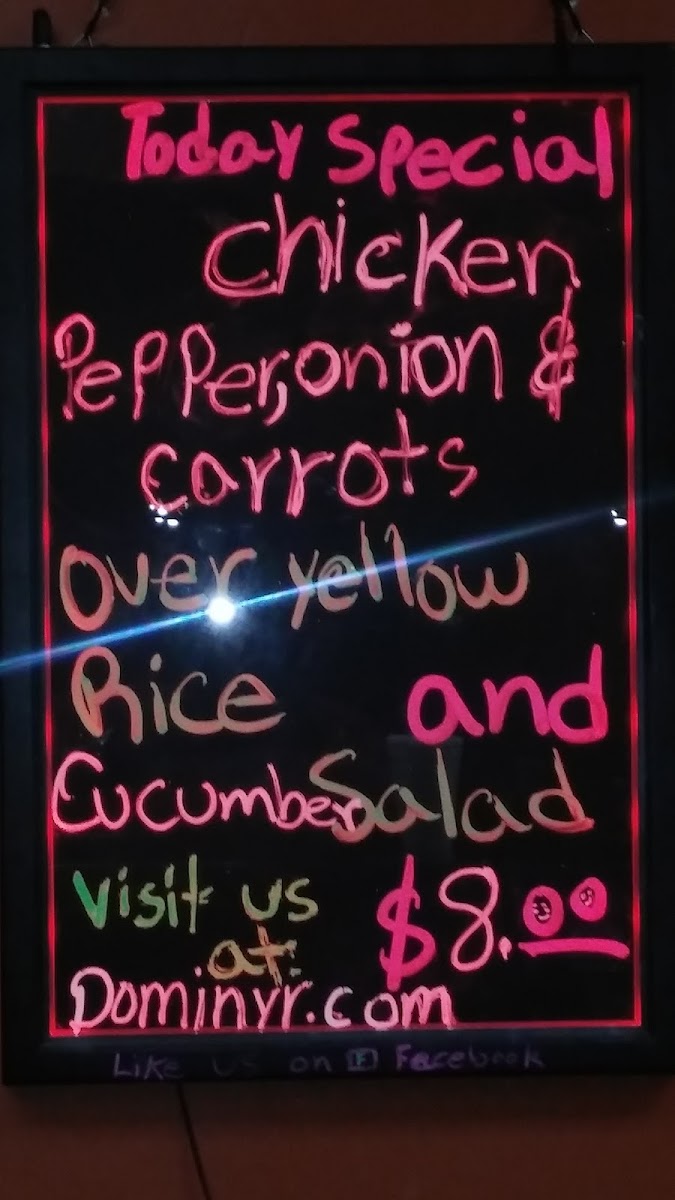 Today Special
Chicken,
Pepper, onion &
Carrots
Over yellow
Rice and
Cucumber Salad
Visit us $8.00
at:
Dominyr.com
Like us on f Facebook